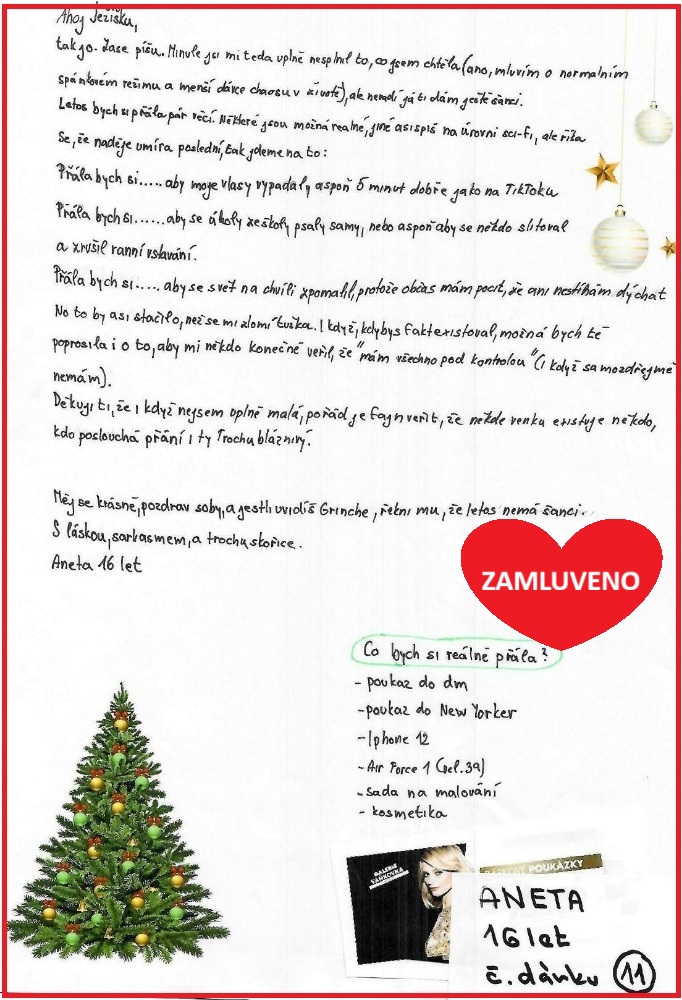 Ahoj Ježíšku,
tak jo. Zase píšu. Minule jsi mi teda úplně nesplnil to, co jsem chtěla (ano, mluvím o normálním
spánkovém režimu a menší dávce chaosu v životě), ale nevadí já ti dám ještě šanci.
Letos bych si přála pár věcí. Některé jsou možná reálné, jiné asi spíš na úrovni sci-fi, ale říká
se, že naděje umírá poslední, tak jdeme na to:
Přála bych si..... aby moje vlasy vypadaly aspoň 5 minut dobře jako na TikToku
Přála bych si...... aby se úkoly ze školy psaly samy, nebo aspoň aby se někdo slitoval
a zrušil ranní vstávání.
Přála bych si..... aby se svět na chvíli zpomalil, protože občas mám pocit, že ani nestíhám dýchat
No to by asi stačilo, než se mi zlomí tužka. I když, kdybys fakt existoval, možná bych tě
poprosila i o to, aby mi někdo konečně věřil, že "mám všechno pod kontrolou" (i když samozdřejmě
nemám).
Děkuji ti, že i když nejsem úplně malá, pořád je fajn věřit, že někde venku existuje někdo,
kdo poslouchá přání i ty trochu bláznivý.
Měj se krásně, pozdrav soby, a jestli uvidíš Grinche, řekni mu, že letos nemá šanci.
S láskou, sarkasmem, a trochu skořice.
Aneta 16 let
ZAMLUVENO
Co bych si reálně přála?
- poukaz do dm
- poukaz do New Yorker
- Iphone 12
- Air Force 1 (vel. 39)
- sada na malování
- kosmetika
GALERIE
VAŇKOVKA
POUKÁZKY
ANETA
16 let
č. dárku 11